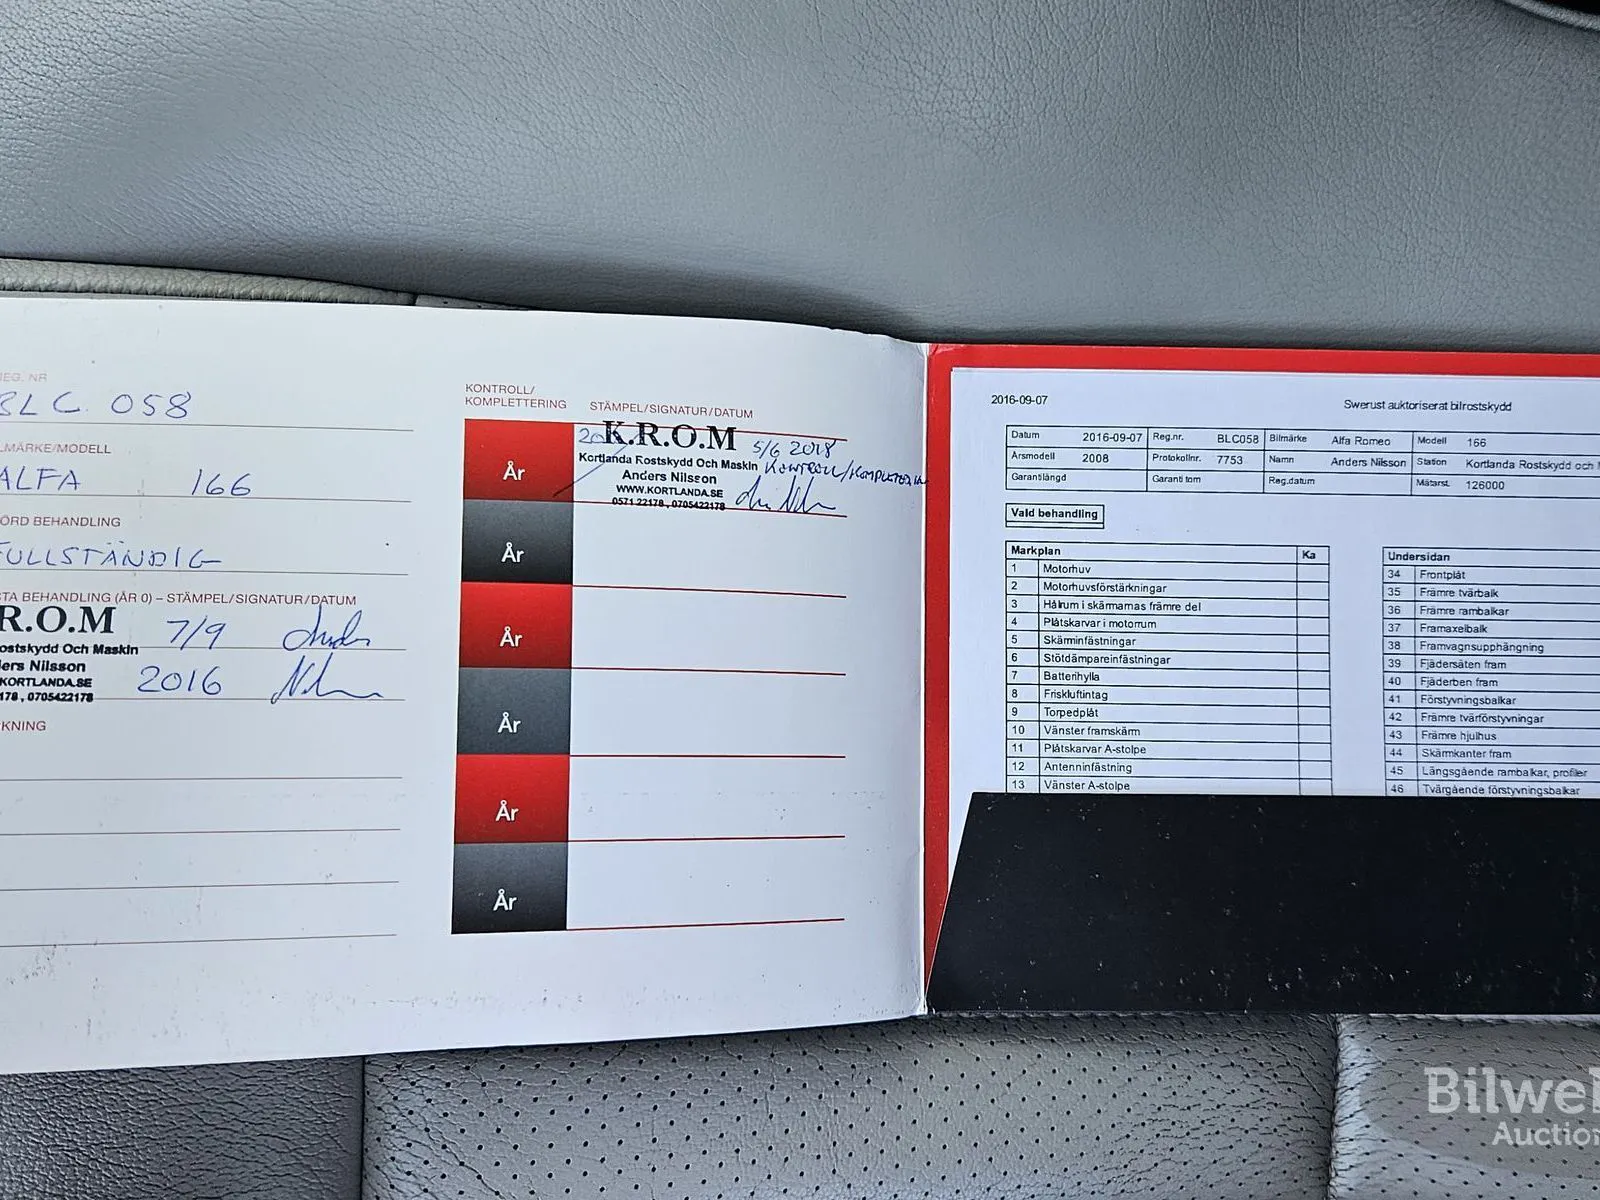 EG. NR
BLC 058
LMÄRKE/MODELL
ALFA 166
ÖRD BEHANDLING
FULLSTÄNDIG
STA BEHANDLING (ÅR 0) – STÄMPEL/SIGNATUR/DATUM
R.O.M 7/9
ostskydd Och Maskin
ers Nilsson
KORTLANDA.SE 2016
178 , 0705422178
KNING
KONTROLL/
KOMPLETTERING STÄMPEL/SIGNATUR/DATUM
År
20 K.R.O.M 5/6 2018
Kortlanda Rostskydd Och Maskin KONTROLL/
Anders Nilsson
WWW.KORTLANDA.SE
0571 22178 , 0705422178
År
År
År
År
År
2016-09-07 Swerust auktoriserat bilrostskydd
Datum 2016-09-07 Reg.nr. BLC058 Bilmärke Alfa Romeo Modell 166
Årsmodell 2008 Protokollnr. 7753 Namn Anders Nilsson Station Kortlanda Rostskydd och
Garantilängd Garanti tom Reg.datum Mätarst. 126000
Vald behandling
Markplan Ka
1 Motorhuv
2 Motorhuvsförstärkningar
3 Hålrum i skärmarnas främre del
4 Plåtskarvar i motorrum
5 Skärminfästningar
6 Stötdämpareinfästningar
7 Batterihylla
8 Friskluftintag
9 Torpedplåt
10 Vänster framskärm
11 Plåtskarvar A-stolpe
12 Antenninfästning
13 Vänster A-stolpe
Undersidan
34 Frontplåt
35 Främre tvärbalk
36 Främre rambalkar
37 Framaxelbalk
38 Framvagnsupphängning
39 Fjädersäten fram
40 Fjäderben fram
41 Förstyvningsbalkar
42 Främre tvärförstyvningar
43 Främre hjulhus
44 Skärmkanter fram
45 Längsgående rambalkar, profiler
46 Tvärgående förstyvningsbalkar
Bilwe
Auction